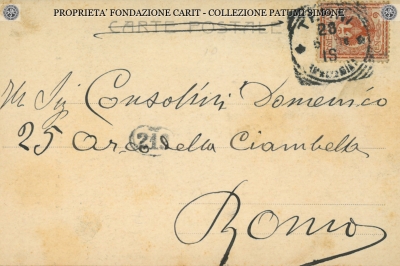 PROPRIETA' FONDAZIONE CARIT - COLLEZIONE PATUMI SIMONE
CARTE POSTALE
28
18
M Sig Consolini Domenico
25 Arco della Ciambella
219
Roma